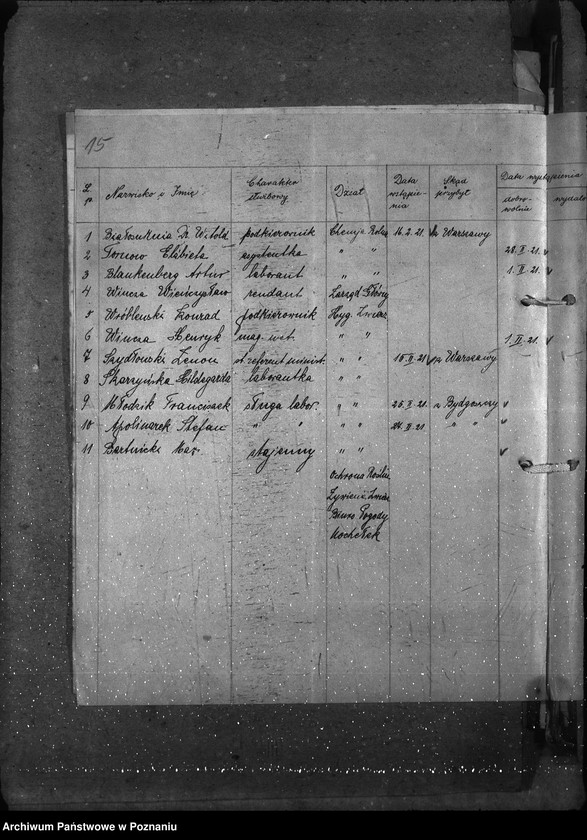 15
L.p. Nazwisko i Imię Charakter służbowy Dział Data wstąpienia Skąd przybył Data wystąpienia
dobrowolnie wydalo
1 Białosuknia Dr. Witold podkierownik Chemja Roln. 16.2.21. z Warszawy
2 Tornow Elżbieta asystentka " " 28.II.21.
3 Blankenberg Artur laborant " " 1.II.21.
4 Wincza Wieńczysław rendant Zarząd Główny
5 Wróblewski Konrad podkierownik Hyg. Zwierz
6 Wincza Henryk mag. wet. 1.II.21.
7 Szydłowski Zenon st. referent minist. " " 15.II.21. z Warszawy
8 Skarzyńska Hildegarda laborantka " "
9 Młodzik Franciszek sługa labor. " " 25.II.21. z Bydgoszczy
10 Apolinarek Stefan " " " " 24.II.21 " "
11 Bartnicki Max stajenny " "
Ochrona Roślin
Żywienie Zwierz
Biuro Pogody
Mochełek
Archiwum Państwowe w Poznaniu